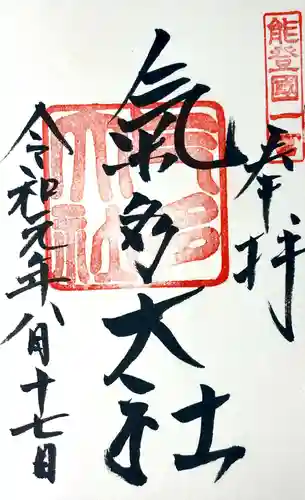 能登國一宮
奉拝
氣多大社
氣多大社
令和元年八月十七日